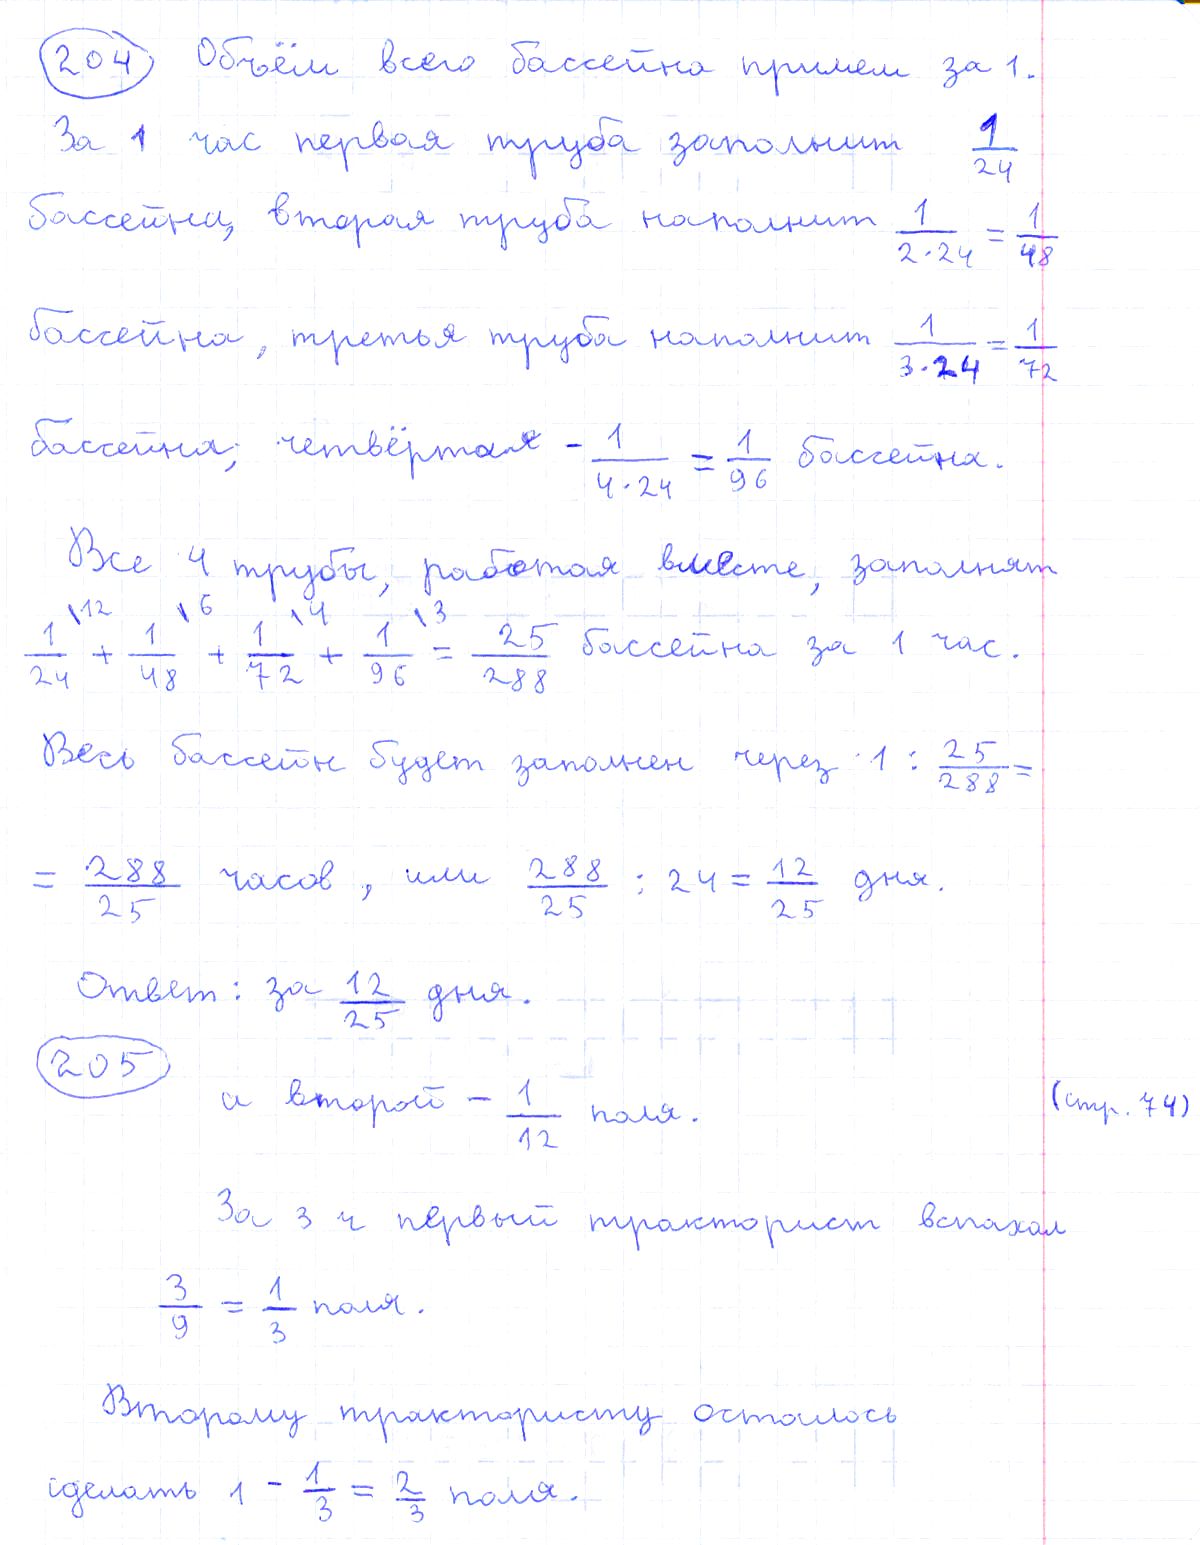 204 Объём всего бассейна примем за 1.
За 1 час первая труба заполнит 1/24
бассейна, вторая труба наполнит 1/(2·24) = 1/48
бассейна, третья труба наполнит 1/(3·24) = 1/72
бассейна, четвёртая - 1/(4·24) = 1/96 бассейна.
Все 4 трубы, работая вместе, заполнят
1/24 \12 + 1/48 \6 + 1/72 \4 + 1/96 \3 = 25/288 бассейна за 1 час.
Весь бассейн будет заполнен через 1 : 25/288 =
= 288/25 часов, или 288/25 : 24 = 12/25 дня.
Ответ: за 12/25 дня.
205
а второй - 1/12 поля. (стр. 74)
За 3 ч первый тракторист вспахал
3/9 = 1/3 поля.
Второму трактористу осталось
сделать 1 - 1/3 = 2/3 поля.